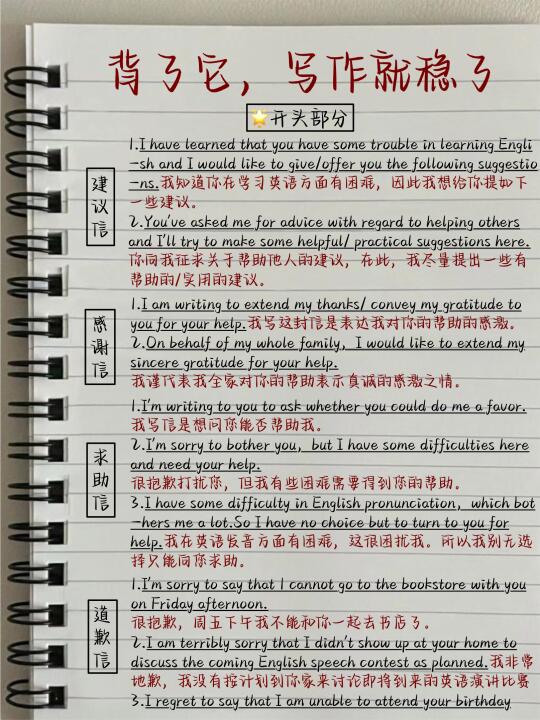 背了它，写作就稳了
⭐开头部分
建议信
1.I have learned that you have some trouble in learning Engli
-sh and I would like to give/offer you the following suggestio
-ns.我知道你在学习英语方面有困难，因此我想给你提如下
一些建议。
2.You've asked me for advice with regard to helping others
and I'll try to make some helpful/ practical suggestions here.
你向我征求关于帮助他人的建议，在此，我尽量提出一些有
帮助的/实用的建议。
感谢信
1.I am writing to extend my thanks/ convey my gratitude to
you for your help.我写这封信是表达我对你的帮助的感激。
2.On behalf of my whole family, I would like to extend my
sincere gratitude for your help.
我谨代表我全家对你的帮助表示真诚的感激之情。
求助信
1.I'm writing to you to ask whether you could do me a favor.
我写信是想问你能否帮助我。
2.I'm sorry to bother you, but I have some difficulties here
and need your help.
很抱歉打扰你，但我有些困难需要得到你的帮助。
3.I have some difficulty in English pronunciation, which bot
-hers me a lot.So I have no choice but to turn to you for
help.我在英语发音方面有困难，这很困扰我。所以我别无选
择只能向你求助。
道歉信
1.I'm sorry to say that I cannot go to the bookstore with you
on Friday afternoon.
很抱歉，周五下午我不能和你一起去书店了。
2.I am terribly sorry that I didn't show up at your home to
discuss the coming English speech contest as planned.我非常
地歉，我没有按计划到你家来讨论即将到来的英语演讲比赛
3.I regret to say that I am unable to attend your birthday